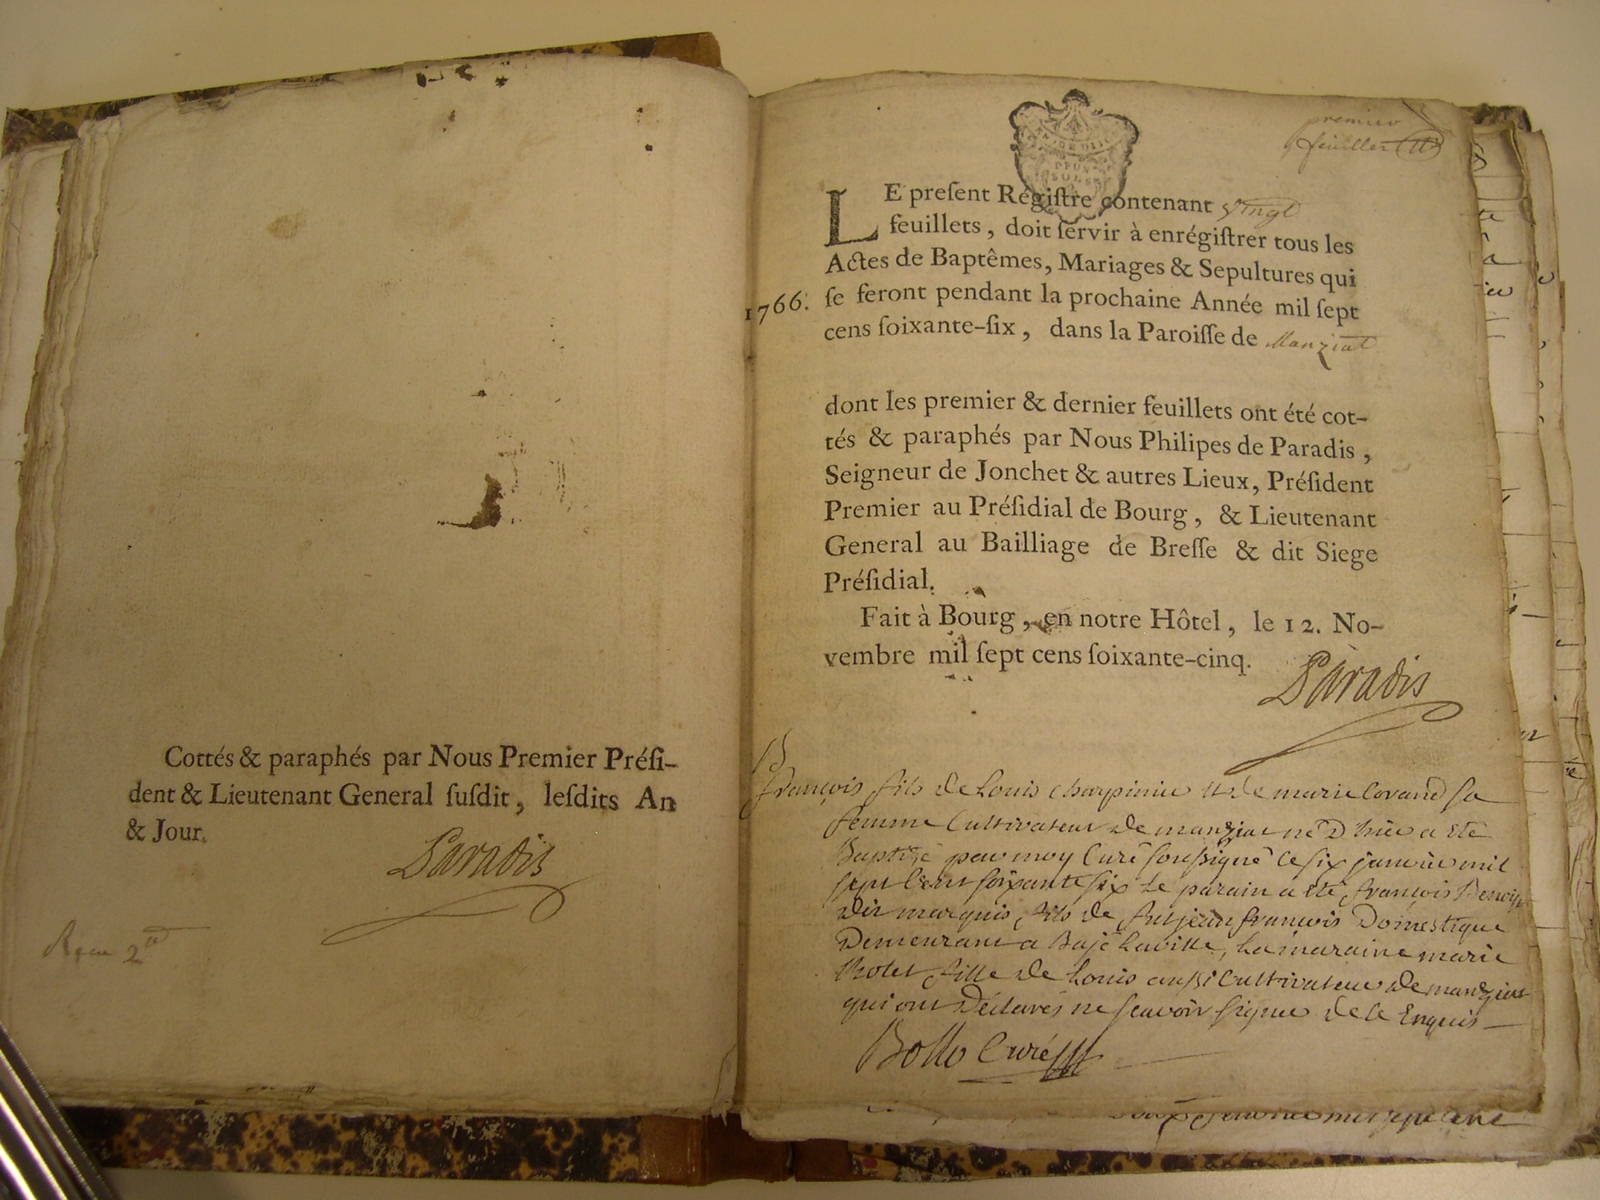 Cottés & paraphés par Nous Premier Prési-
dent & Lieutenant General susdit, lesdits An
& Jour.
Paradis
premier
feuillet
LE present Régistre contenant Vingt
feuillets, doit servir à enrégistrer tous les
Actes de Baptêmes, Mariages & Sepultures qui
1766. se feront pendant la prochaine Année mil sept
cens soixante-six, dans la Paroisse de Manziat
dont les premier & dernier feuillets ont été cot-
tés & paraphés par Nous Philipes de Paradis,
Seigneur de Jonchet & autres Lieux, Président
Premier au Présidial de Bourg, & Lieutenant
General au Bailliage de Bresse & dit Siege
Présidial.
Fait à Bourg, en notre Hôtel, le 12. No-
vembre mil sept cens soixante-cinq.
Paradis
B
françois fils de Louis et de marie sa
femme Cultivateur de manziat né D'hier a eté
Baptizé par moy Curé soussigné ce six janvier mil
sept Cent soixante six Le parain a eté françois
dit marquis fils de fut jean françois Domestique
Demeurant a Bajé la ville, La maraine marie
fille de Louis aussi Cultivateur de manziat
qui ont Déclarés ne scavoir signer de ce Enquis
Bollo Curé